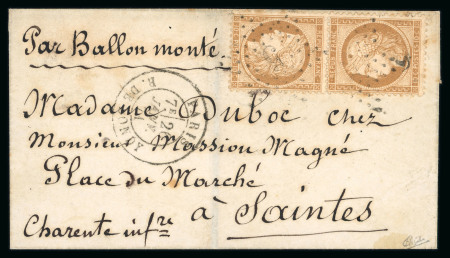 Par Ballon monté
PARIS
7E 2E
Madame Duboc chez
Monsieur Massion Magné
Place du Marché
à Saintes
Charente infre